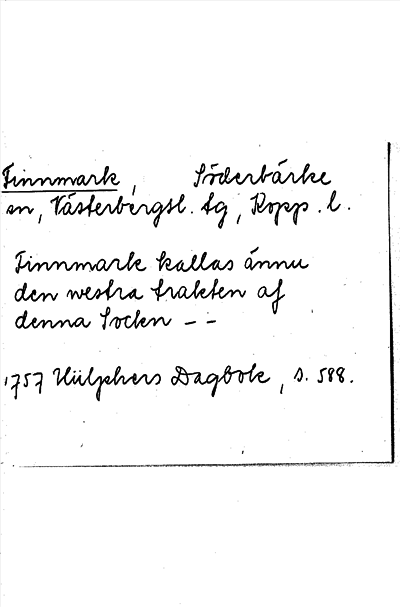 Finnmark, Söderbärke
sn, Västerbergsl. tg, Kopp. l.
Finnmark kallas ännu
den westra trakten af
denna Socken – –
1757 Hülphers Dagbok, s. 588.